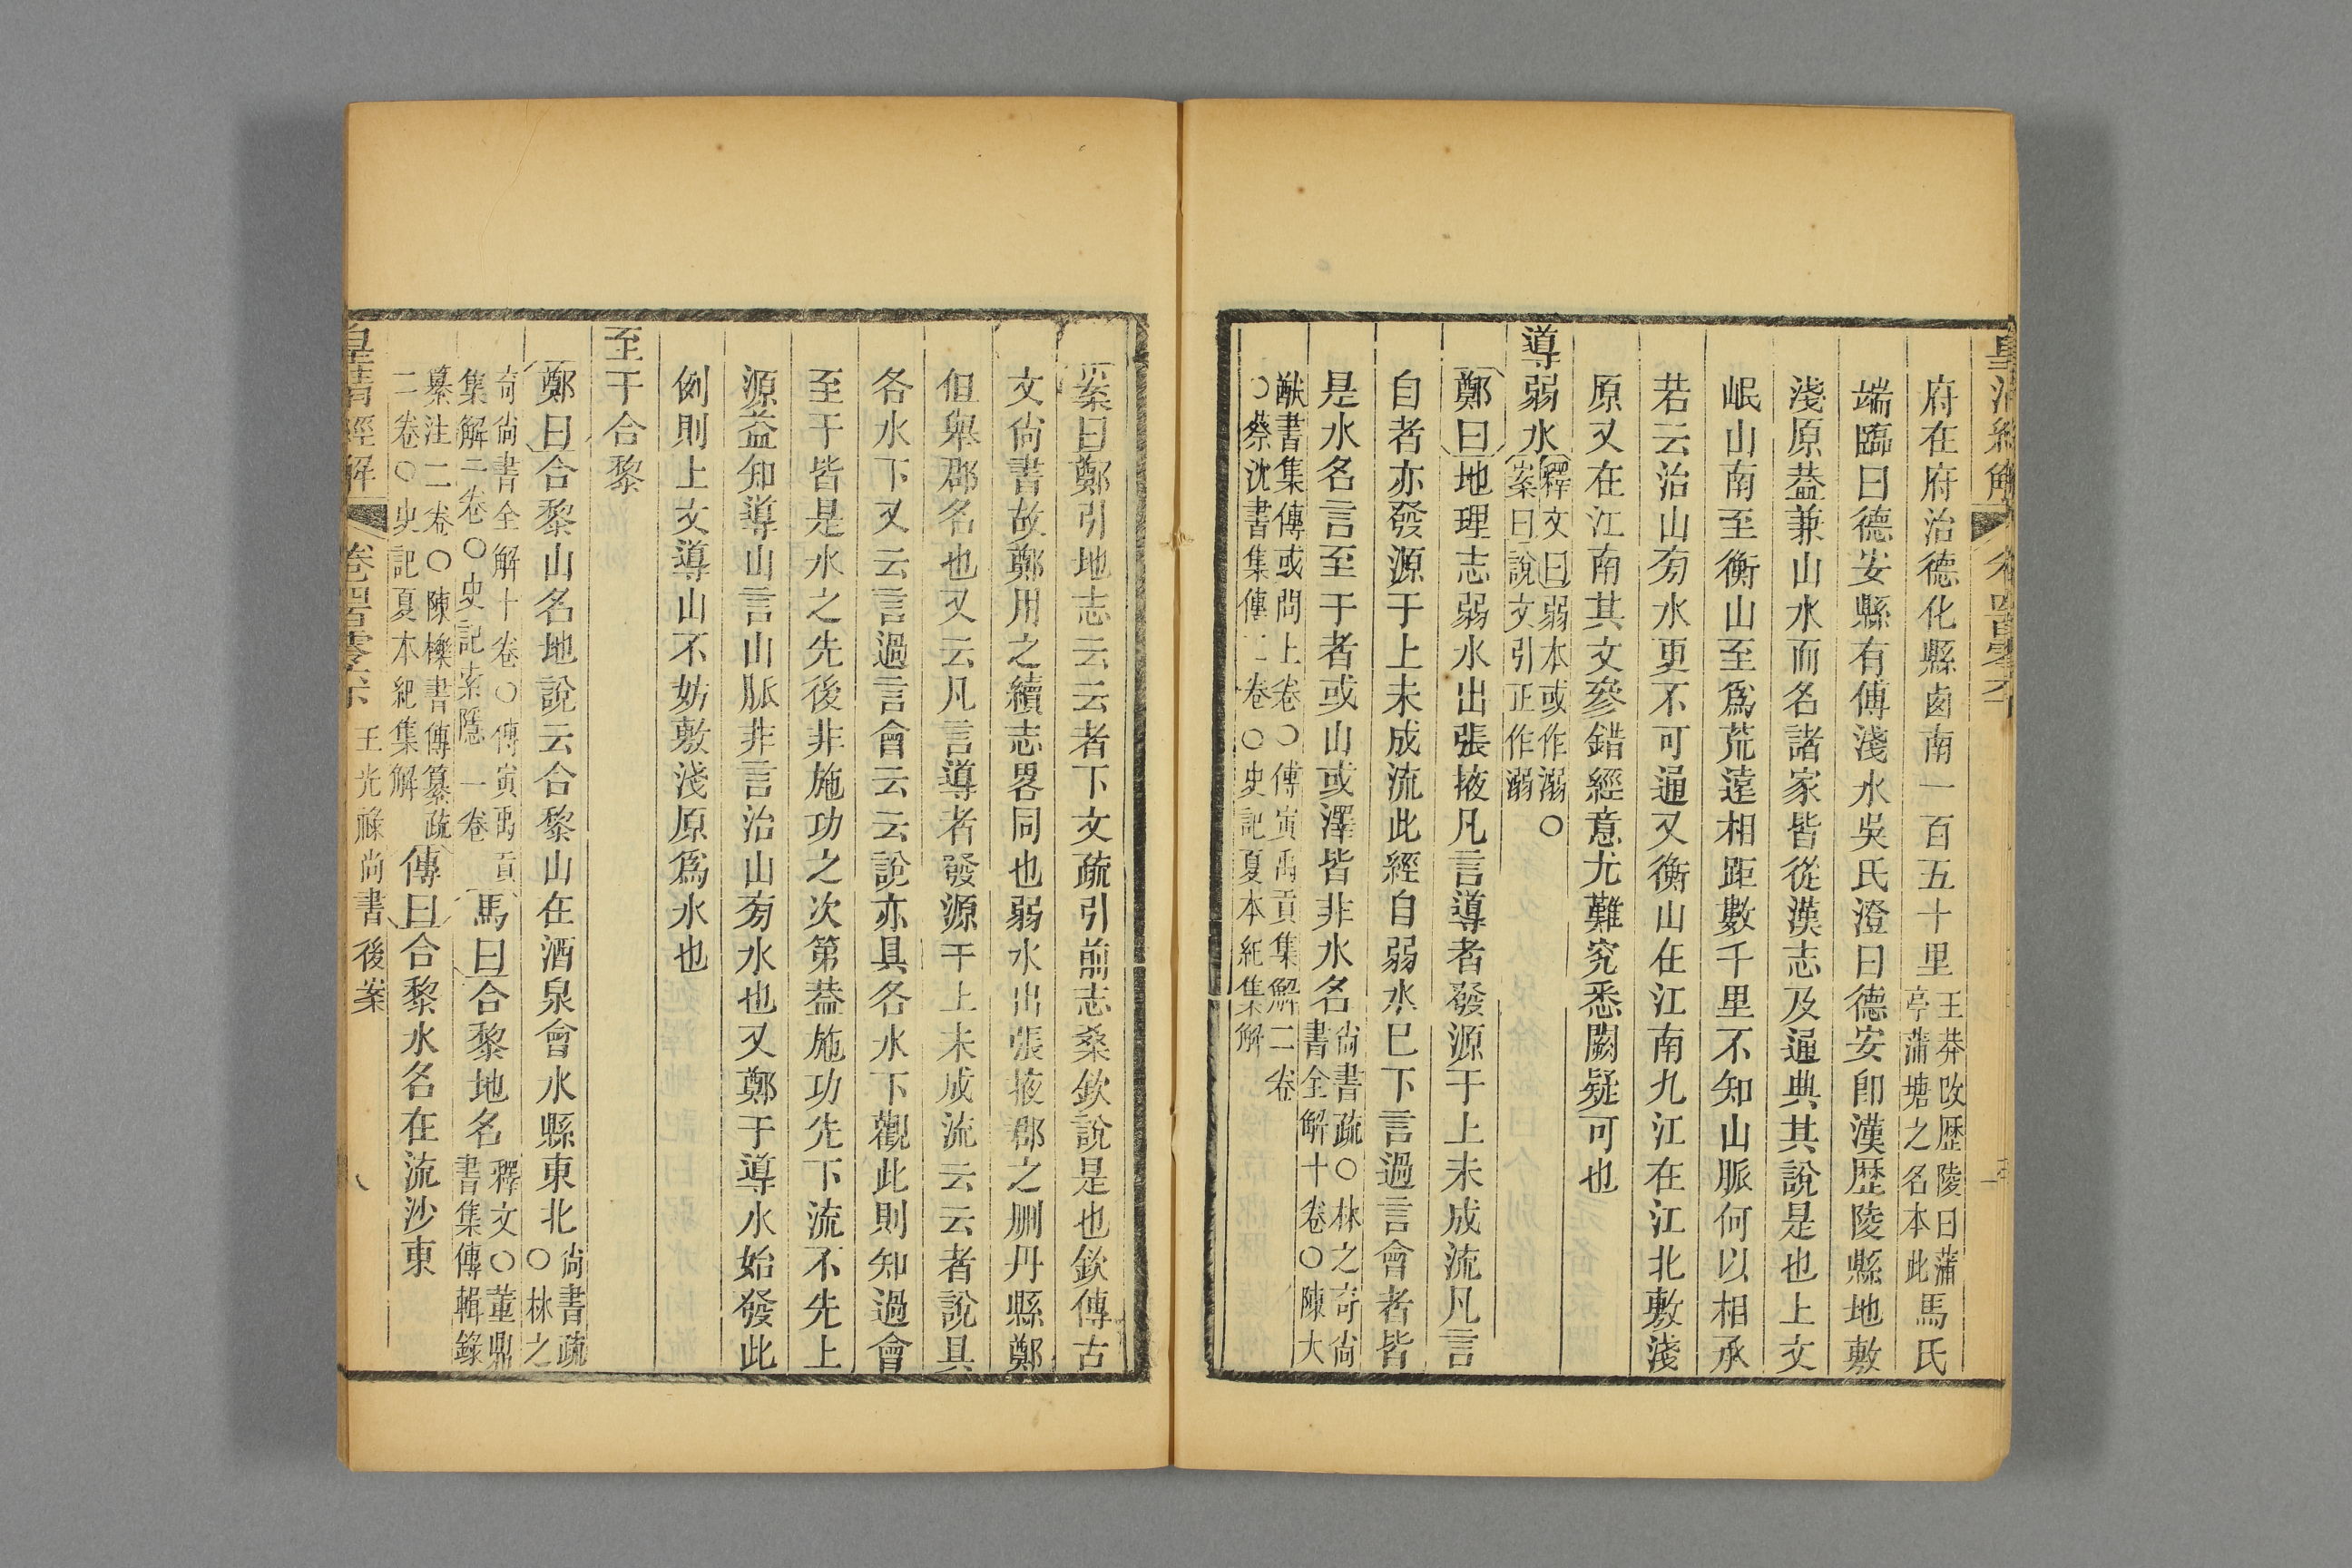 皇清經解
府在府治德化縣鹵南一百五十里王莽改歷陵曰蒲亭蒲塘之名本此馬氏
端臨曰德安縣有傅淺水吳氏澄曰德安卽漢歷陵縣地敷
淺原葢兼山水而名諸家皆從漢志及通典其說是也上文
岷山南至衡山至爲荒遠相距數千里不知山脈何以相承
若云治山㫄水更不可通又衡山在江南九江在江北敷淺
原又在江南其文參錯經意尤難究悉闕疑可也
導弱水釋文曰弱本或作溺○案曰說文引正作溺
鄭曰地理志弱水出張掖凡言導者發源于上未成流凡言
自者亦發源于上未成流此經自弱水巳下言過言會者皆
是水名言至于者或山或澤皆非水名尙書疏○林之奇尙書全解十卷○陳大
猷書集傳或問上卷○傅寅禹貢集解二卷○蔡沈書集傳二卷○史記夏本紀集解
案曰鄭引地志云云者下文疏引前志桑欽說是也欽傳古
文尙書故鄭用之續志畧同也弱水出張掖郡之刪丹縣鄭
但舉郡名也又云凡言導者發源于上未成流云云者說具
各水下又云言過言會云云說亦具各水下觀此則知過會
至于皆是水之先後非施功之次第葢施功先下流不先上
源益知導山言山脈非言治山㫄水也又鄭于導水始發此
例則上文導山不妨敷淺原爲水也
至于合黎
鄭曰合黎山名地說云合黎山在酒泉會水縣東北尙書疏○林之
奇尙書全解十卷○傅寅禹貢集解二卷○史記索隱一卷馬曰合黎地名釋文○董鼎書集傳輯錄
纂注二卷○陳櫟書傳纂疏二卷○史記夏本紀集解傳曰合黎水名在流沙東
皇清經解 卷四百零六 王光祿尙書後案 八